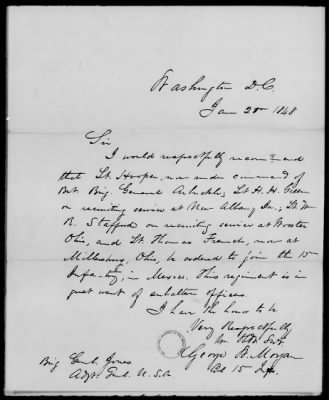 Washington D.C.
Jan 20th 1848
Sir
I would respectfully recommend
that Lt. Hooper, now under command of
Bvt. Brig. General Arbuckle, Lt H. H. Green
on recruiting service at New Albany Ia; Lt. W
R. Stafford on recruiting service at Wooster
Ohio, and Lt. Thomas French, now at
Millersburg, Ohio, be ordered to join the 15
Infantry, in Mexico. This regiment is in
great want of subaltern officers.
I have the honor to be
Very Respectfully
Yr. Obt. Svt.
George W. Morgan
Col 15 Inf.
Brig Genl. Jones
Adjt. Genl. U.S.A